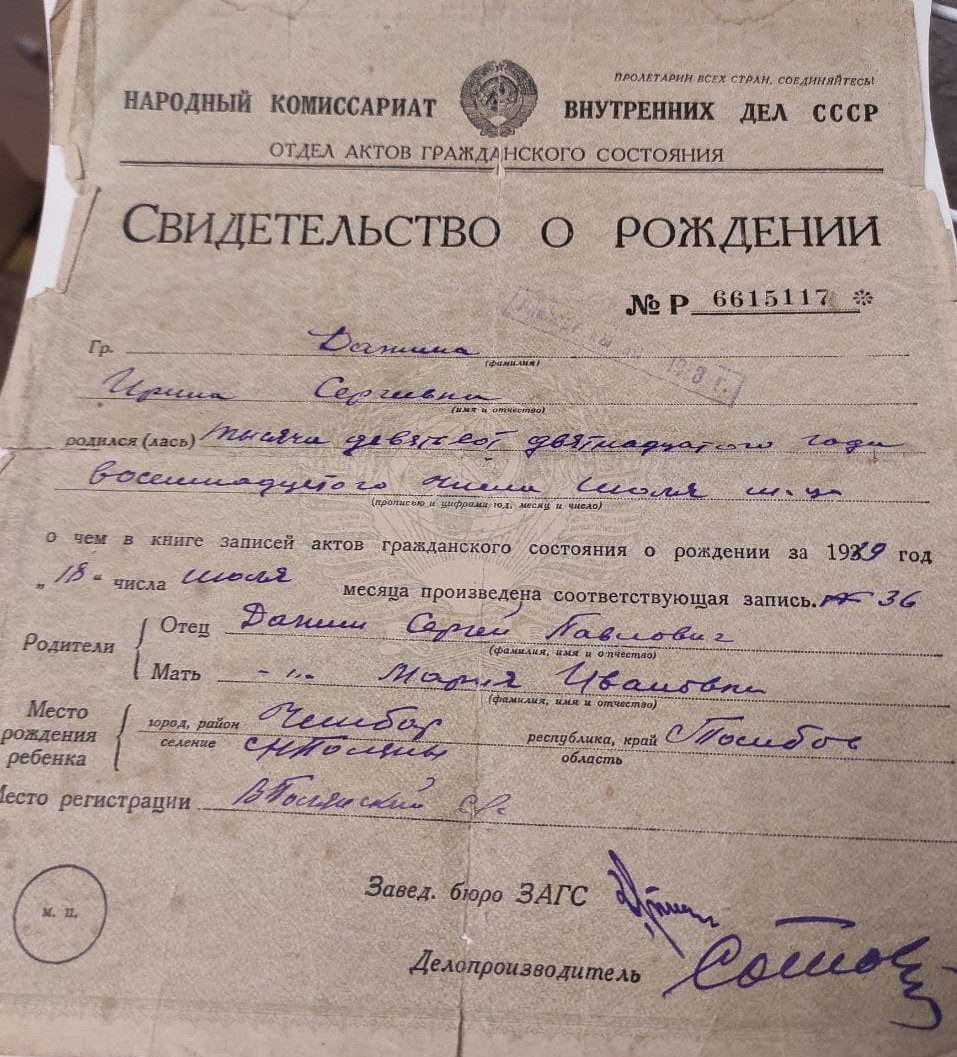 ПРОЛЕТАРИИ ВСЕХ СТРАН, СОЕДИНЯЙТЕСЬ!
НАРОДНЫЙ КОМИССАРИАТ ВНУТРЕННИХ ДЕЛ СССР
ОТДЕЛ АКТОВ ГРАЖДАНСКОГО СОСТОЯНИЯ
СВИДЕТЕЛЬСТВО О РОЖДЕНИИ
№ Р 6615117
Гр. Данина
(фамилия)
Ирина Сергевна
(имя и отчество)
родился (лась) тысяча девятсот двятнадцатого года
восемнадцетого числа июля м-ца
(прописью и цифрами год, месяц и число)
о чем в книге записей актов гражданского состояния о рождении за 1939 год
„18" числа июля месяца произведена соответствующая запись. № 36
Родители
Отец Данин Сергей Павлович
(фамилия, имя и отчество)
Мать -"- Мария Ивановна
(фамилия, имя и отчество)
Место рождения ребенка
город, район
селение
республика, край
область
Место регистрации
Завед. бюро ЗАГС
М. П.
Делопроизводитель